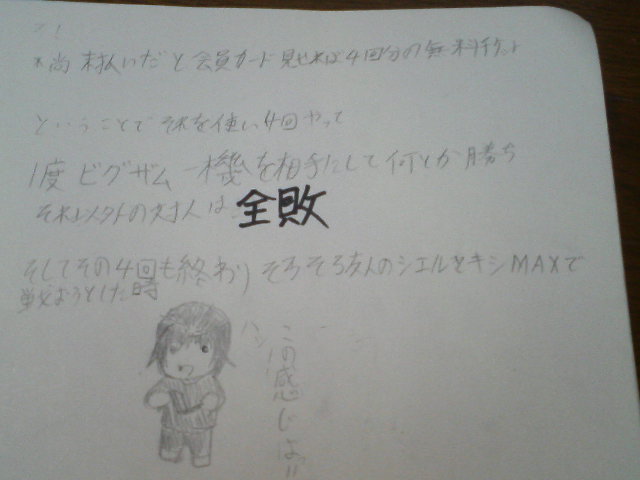 尚 未払いだと会員カード見せれば4回分の無料チケット
ということで それを使い4回やって
1度ビグザム一機を相手にして何とか勝ち
それ以外の対人は 全敗
そしてその4回も終わり そろそろ友人のシエルとキシMAXで
戦おうとした時
ハッ
この感じは!!